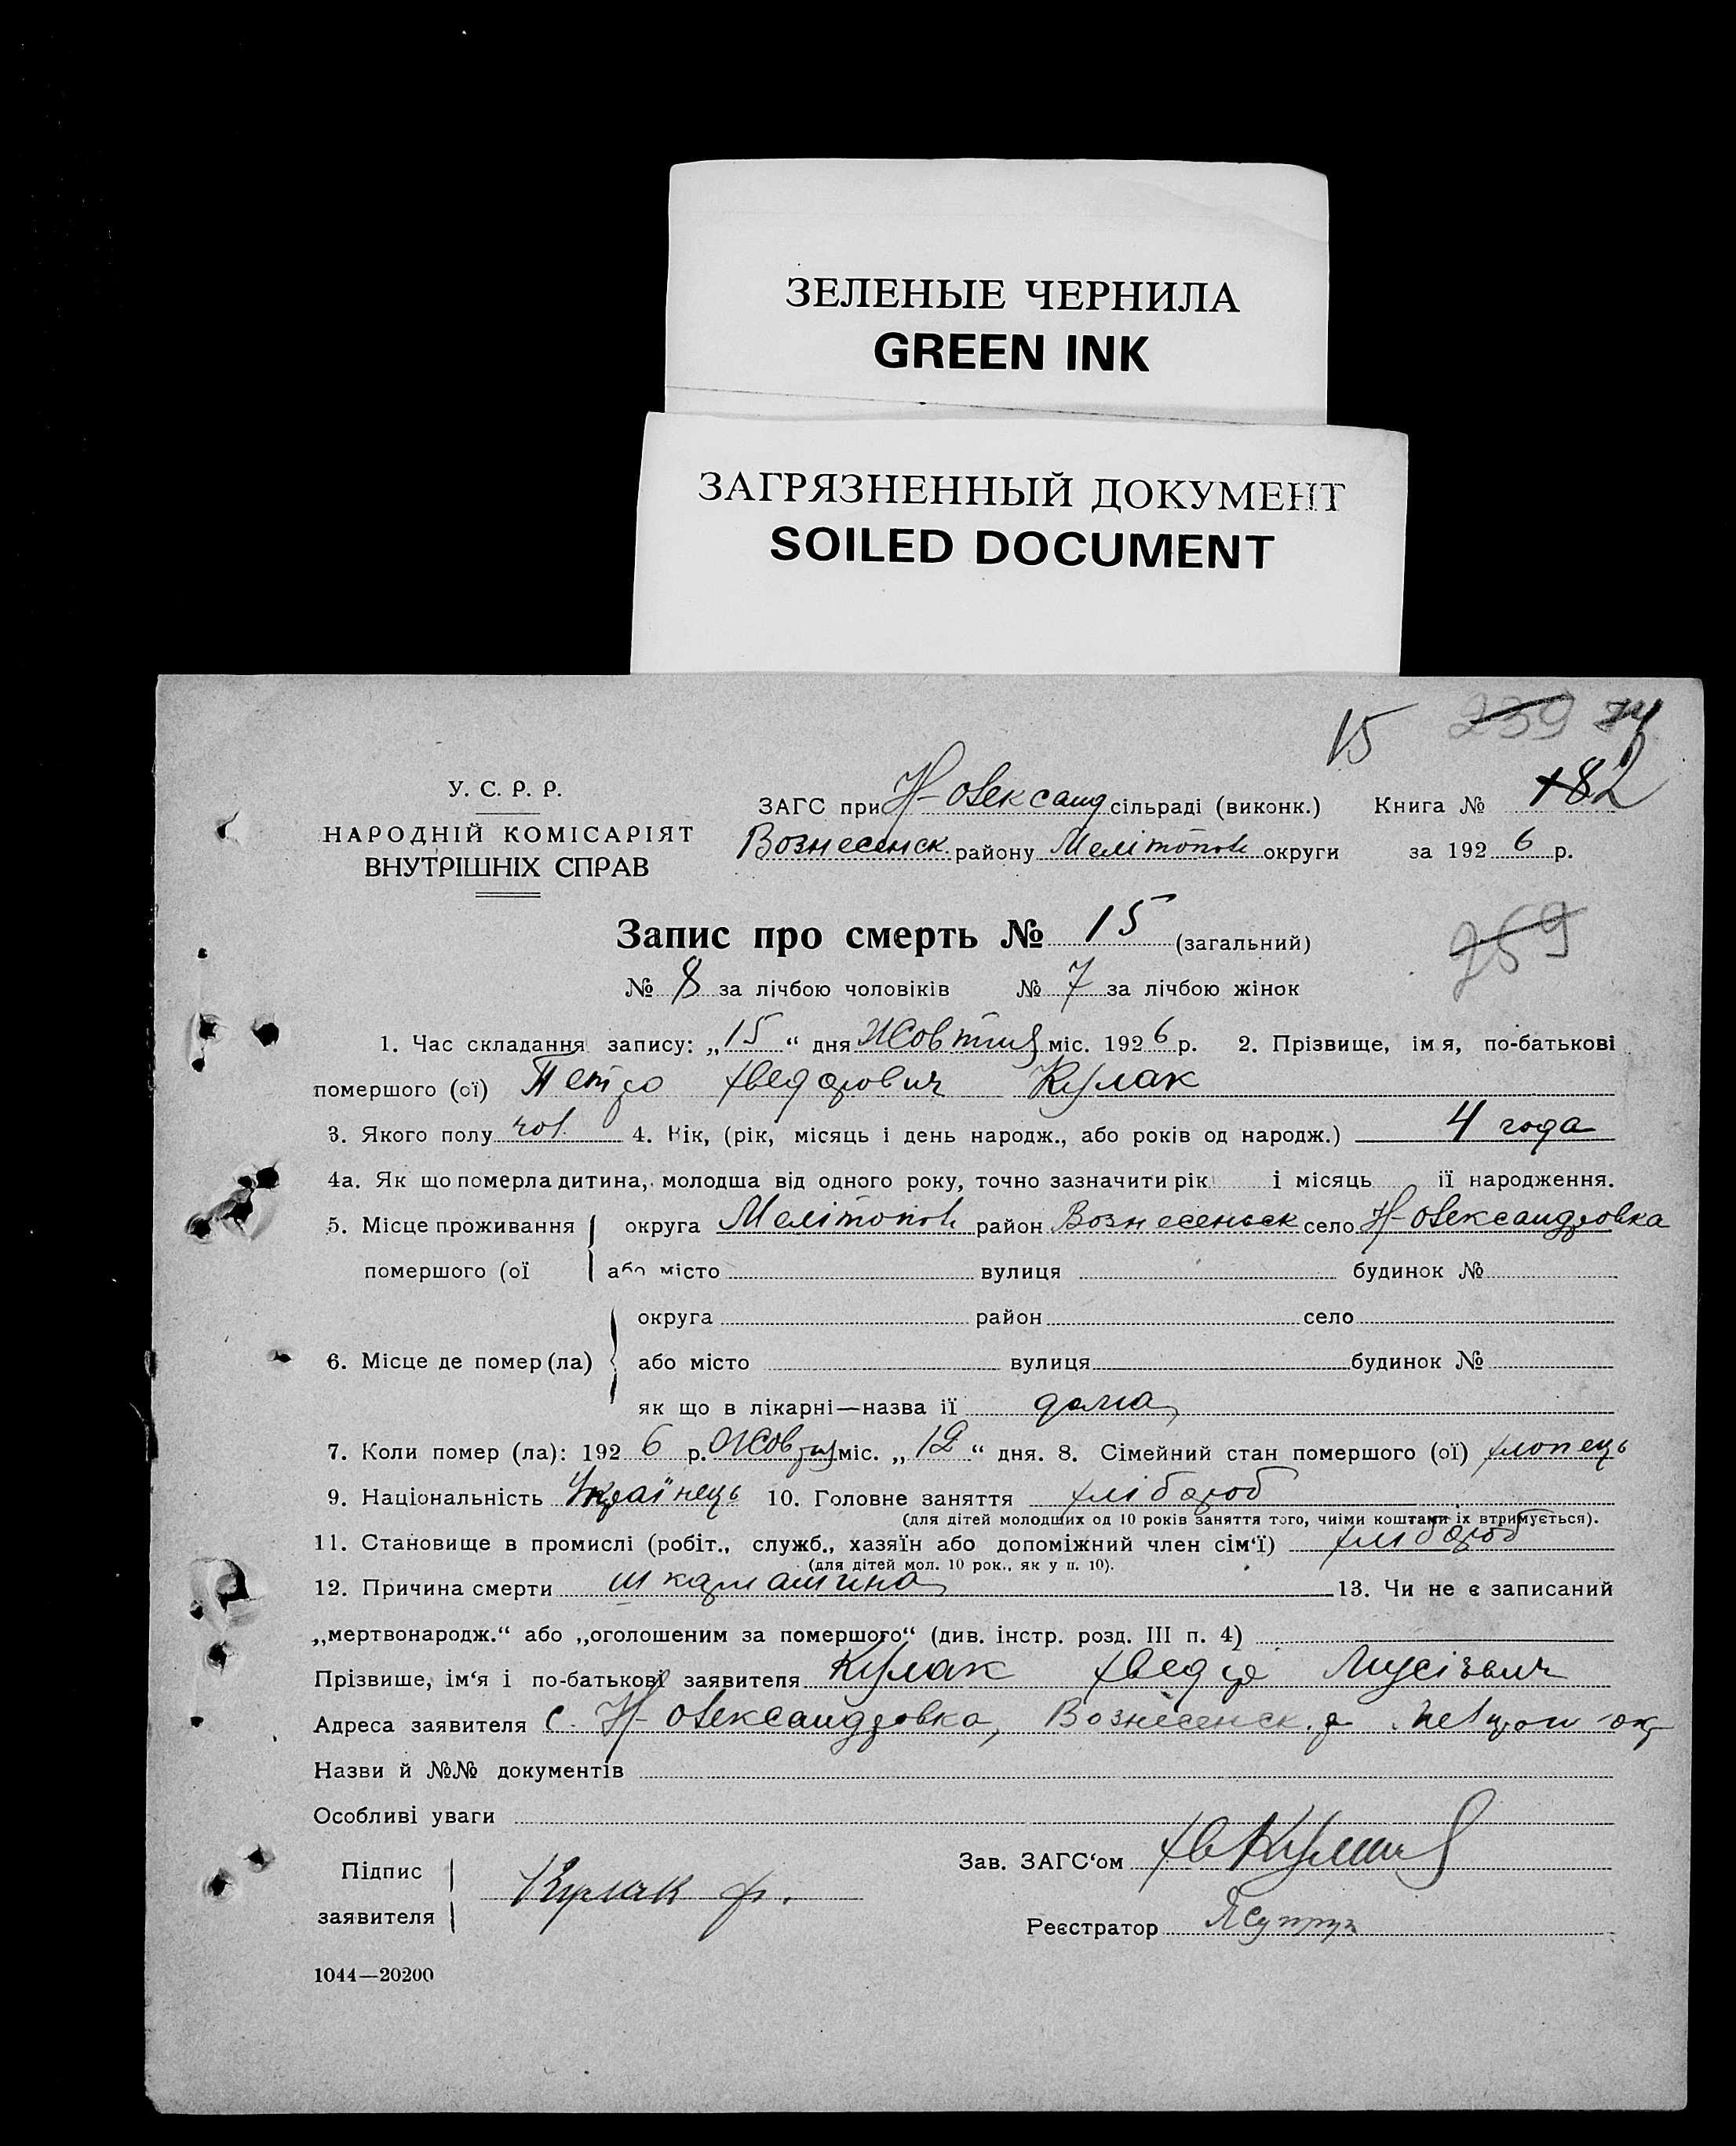 ЗЕЛЕНЫЕ ЧЕРНИЛА
GREEN INK
ЗАГРЯЗНЕННЫЙ ДОКУМЕНТ
SOILED DOCUMENT
15 239
У. С. Р. Р.
НАРОДНІЙ КОМІСАРІЯТ
ВНУТРІШНІХ СПРАВ
ЗАГС при Н-Олександ сільраді (виконк.) Книга № 182
Вознесенск. району Мелітопол округи за 1926 р.
Запис про смерть № 15 (загальний)
259
№ 8 за лічбою чоловіків № 7 за лічбою жінок
1. Час складання запису: „15“ дня Жовтня міс. 1926 р. 2. Прізвище, імя, по-батькові
помершого (ої) Петро Хведорович Кулак
3. Якого полу чол. 4. Вік, (рік, місяць і день народж., або років од народж.) 4 года
4а. Як що померла дитина, молодша від одного року, точно зазначити рік і місяць її народження.
5. Місце проживання округа Мелітопол район Вознесеньск село Н-Олександровка
помершого (ої або місто вулиця будинок №
округа район село
6. Місце де помер (ла) або місто вулиця будинок №
як що в лікарні—назва її дома
7. Коли помер (ла): 1926 р. Жовтня міс. „12“ дня. 8. Сімейний стан помершого (ої) хлопець
9. Національність Українець 10. Головне заняття хлібороб
(для дітей молодших од 10 років заняття того, чиїми коштами їх втримується).
11. Становище в промислі (робіт., служб., хазяїн або допоміжний член сім‘ї) хлібороб
(для дітей мол. 10 рок., як у п. 10).
12. Причина смерти шкарлатина 13. Чи не є записаний
„мертвонародж.“ або „оголошеним за помершого“ (див. інстр. розд. III п. 4)
Прізвише, ім‘я і по-батькові заявителя Кулак Хведор Мусієвич
Адреса заявителя С. Н-Олександровка, Вознесенск. р ок
Назви й №№ документів
Особливі уваги
Підпис
заявителя Кулак ф.
Зав. ЗАГС‘ом
Реєстратор
1044—20200